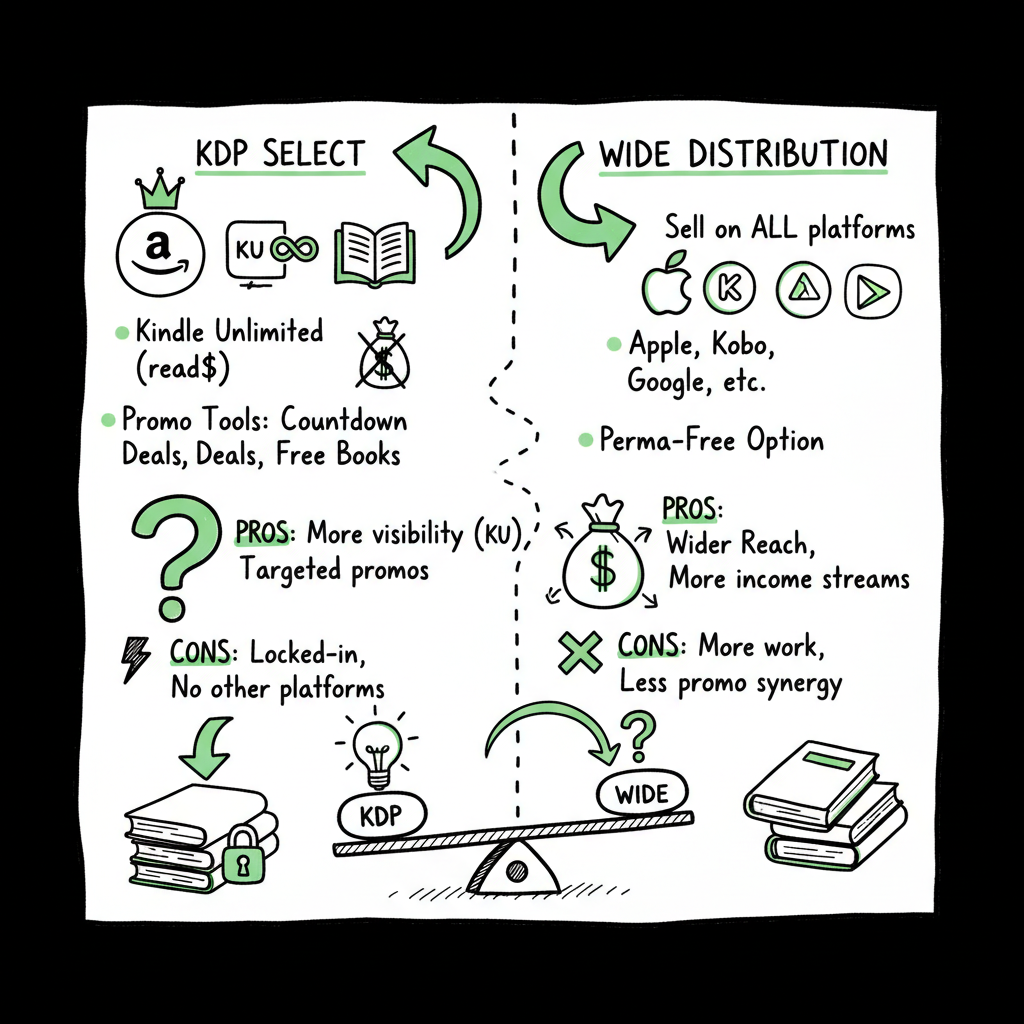 KDP SELECT
a
KU
• Kindle Unlimited
(read$)
$
• Promo Tools: Countdown
Deals, Deals, Free Books
?
PROS: More visibility (KU),
Targeted promos
CONS: Locked-in,
No other platforms
WIDE DISTRIBUTION
Sell on ALL platforms
K
• Apple, Kobo,
Google, etc.
• Perma-Free Option
$
PROS:
Wider Reach,
More income streams
CONS: More work,
Less promo synergy
KDP
?
WIDE